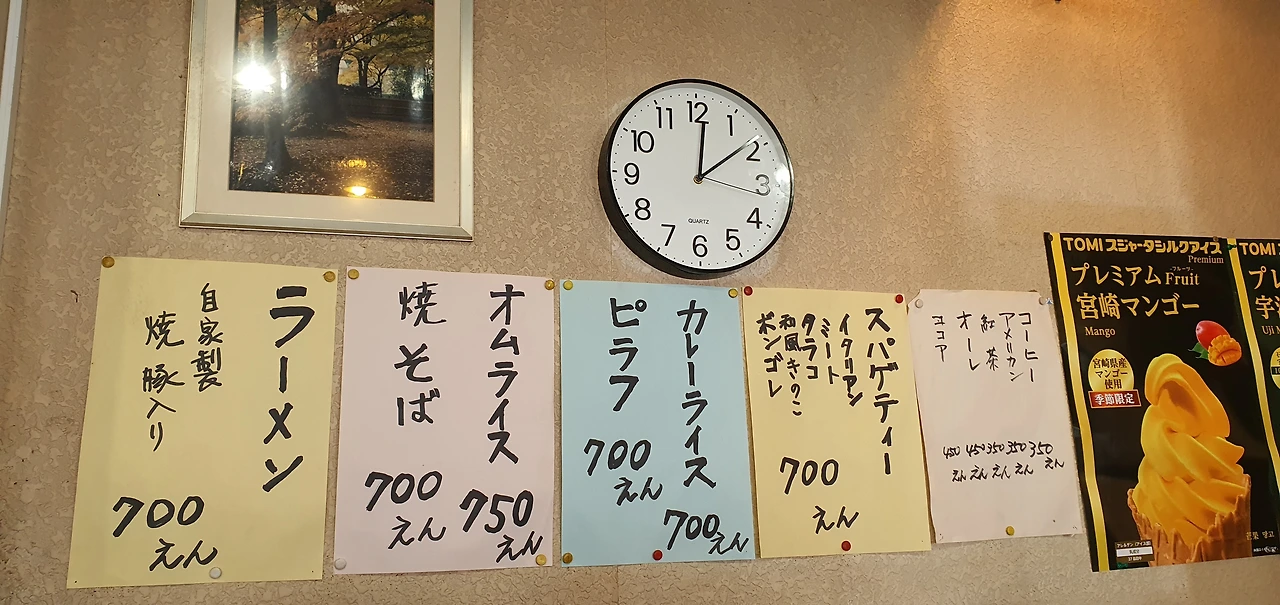 12
1
2
3
4
5
6
7
8
9
10
11
QUARTZ
ラーメン
自家製
焼豚入り
700
えん
オムライス
750
えん
焼そば
700
えん
カレーライス
700えん
ピラフ
700
えん
スパゲティー
イタリアン
ミート
タラコ
和風きのこ
ボンゴレ
700
えん
コーヒー
350
えん
アメリカン
350
えん
紅茶
350
えん
オーレ
450
えん
ココア
450
えん
TOMI スジャータシルクアイス
Premium
プレミアム Fruit
フルーツ
宮崎マンゴー
Mango
宮崎県産
マンゴー
使用
季節限定
TOMI ス
プレ
宇治
Uji M